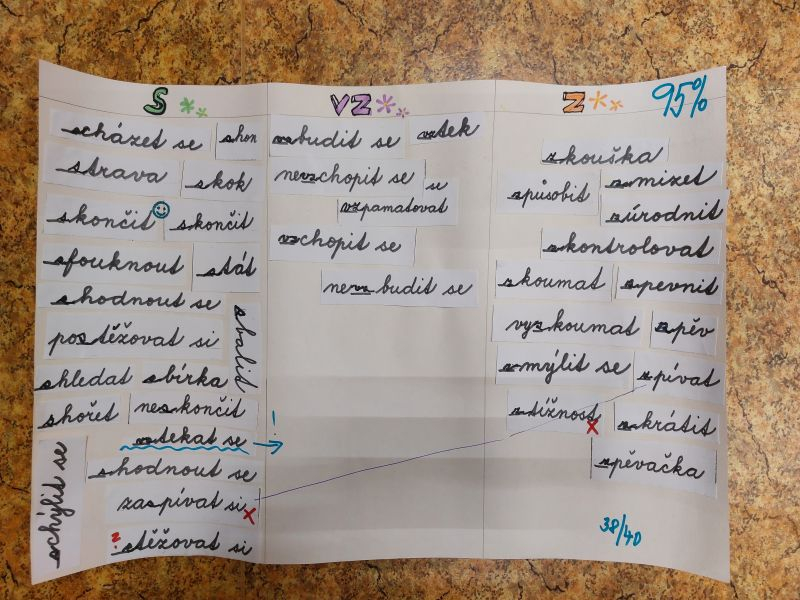 S
scházet se
shon
strava
skok
skončit
skončit
sfouknout
stát
shodnout se
sbalit
postěžovat si
shledat
sbírka
shořet
neskončit
vztekat se
schýlit se
shodnout se
zaspívat si x
z
stěžovat si
VZ
vzbudit se
vztek
nevzchopit se
se
vzpamatovat
vzchopit se
nevzbudit se
Z
95%
zkouška
způsobit
zmizet
zúrodnit
zkontrolovat
zkoumat
zpevnit
vyzkoumat
zpěv
zmýlit se
zpívat
ztížnost x
zkrátit
zpěvačka
38/40